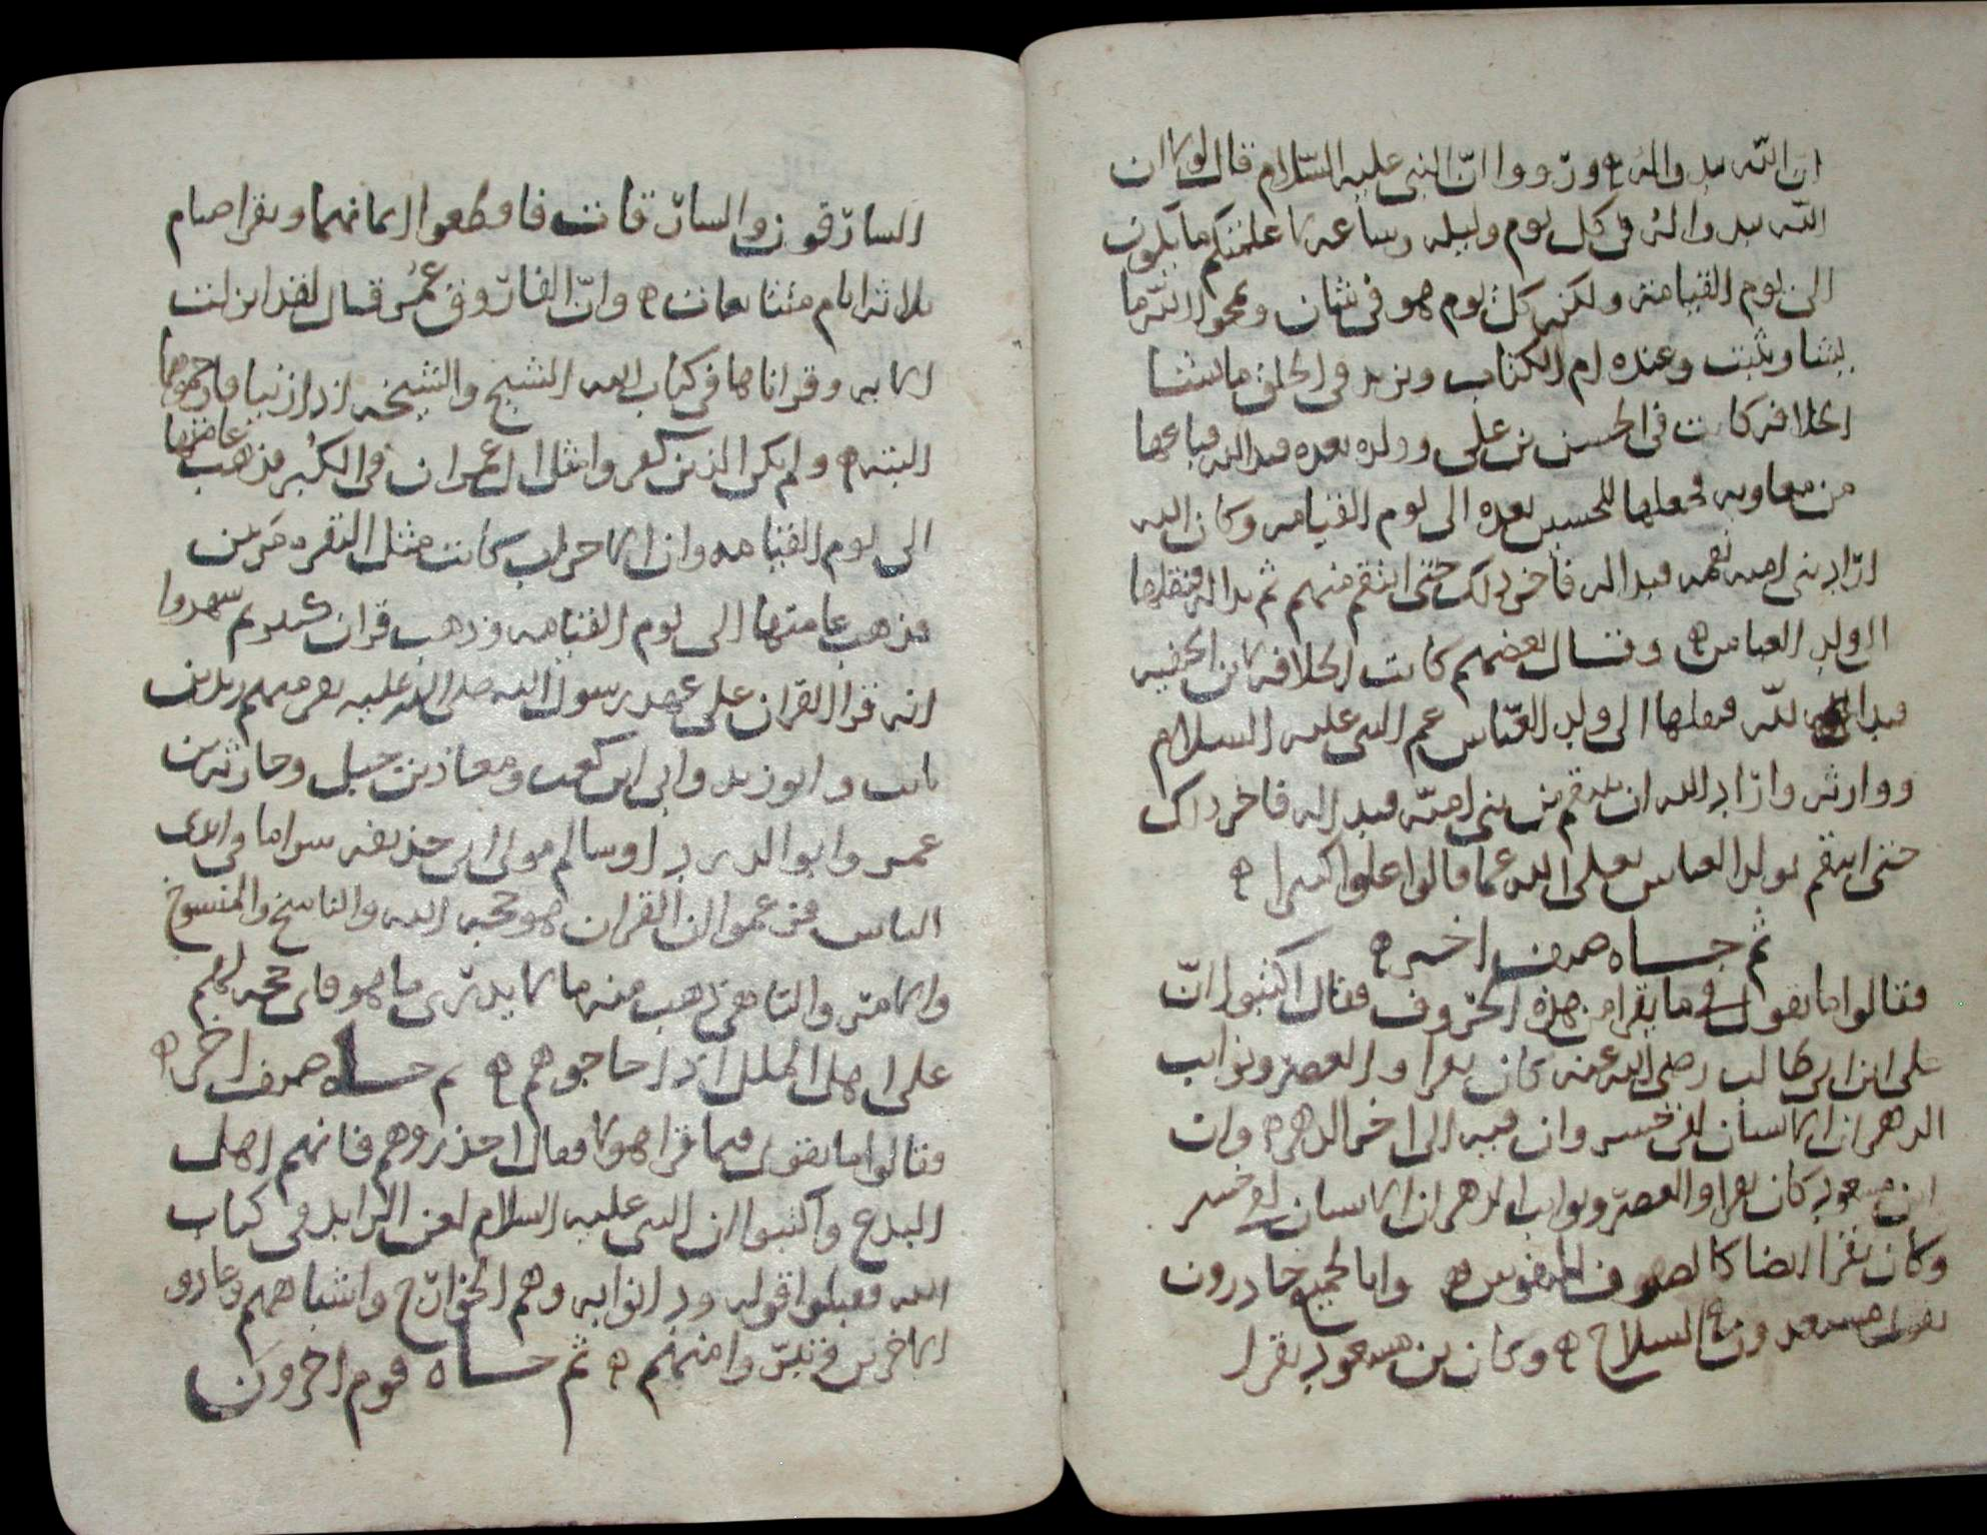 ان الله يبدو اله ورووا ان النبي عليه السلام قال لولا ان
الله يبدو اله في كل يوم وليله وساعه لاعلمتكم ما يكون
الى يوم القيامة ولكنه كل يوم هو في شان ويمحو الله ما
يشا ويثبت وعنده ام الكتاب ويزيد في الخلق ما يشا
الخلافه كانت في الحسن بن علي وولده بعده فبدا لله فباعها
من معاويه فجعلها للحسين بعده الى يوم القيامه وكان الله
اراد بني اميه فبدا له فاخر ذلك حتى انتقم منهم ثم بدا له فنقلها
الى ولد العباس وقال بعضهم كانت الخلافه لابن الحنفيه
فبدا لله فنقلها الى ولد العباس عم النبي عليه السلام
ووارثه واراد الله ان ينتقم من بني اميه فبدا له فاخر ذلك
حتى انتقم بولد العباس تعالى الله عما قالوا علوا كبيرا
ثم جاه صنف اخر
فقالوا ما تقول في ما يقرا من هذه الحروف فقال اكتبوا ان
علي ابن ابي طالب رضي الله عنه كان يقرا والعصر ونوايب
الدهر ان الانسان لفي خسر وانه فيه الى اخر الدهر وان
ابن مسعود كان يقرا والعصر ونوايب الدهر ان الانسان لفي خسر
وكان يقرا ايضا كالصوف المنفوش وانا لجميع حادرون
السلاح وكان بن مسعود يقرا
السارقون والسارقات فاقطعوا ايمانهما ويقرا صيام
ثلاثة ايام متتابعات وان الفاروق عمر قال لقد انزلت
الايه وقراناها في كتاب الله الشيخ والشيخه اذا زنيا فارجموهما
البته ولم يكن الذين كفروا مثل ال عمران في الكبر فذهب عامتها
الى يوم القيامه وان الاحزاب كانت مثل البقره مرتين
فذهب عامتها الى يوم القيامه وذهب قران كثير لم يشهدوا
انه قرا القران على عهد رسول الله صلى الله عليه نفر منهم زيد بن
ثابت وابو زيد وابي ابن كعب ومعاذ بن جبل وحارثه بن
عمر وابو الدردا وسالم مولى ابي حذيفه
الناس فزعموا ان القران هو حجه الله والناسخ والمنسوخ
والتامه ذهب منه ما لا يدرى ما هو فاي حجه لهم
على اهل الملل اذا حاجوهم ثم جاه صنف اخر
فقالوا ما تقول فيما قرا هولا فقال احذروهم فانهم اهل
البدع واكتبوا ان النبي عليه السلام لعن الزايد في كتاب
الله فقبلوا قوله ودانوا به وهم الخوارج واشباههم وعادوا
الاخرين وتبروا منهم ثم جاه قوم اخرون